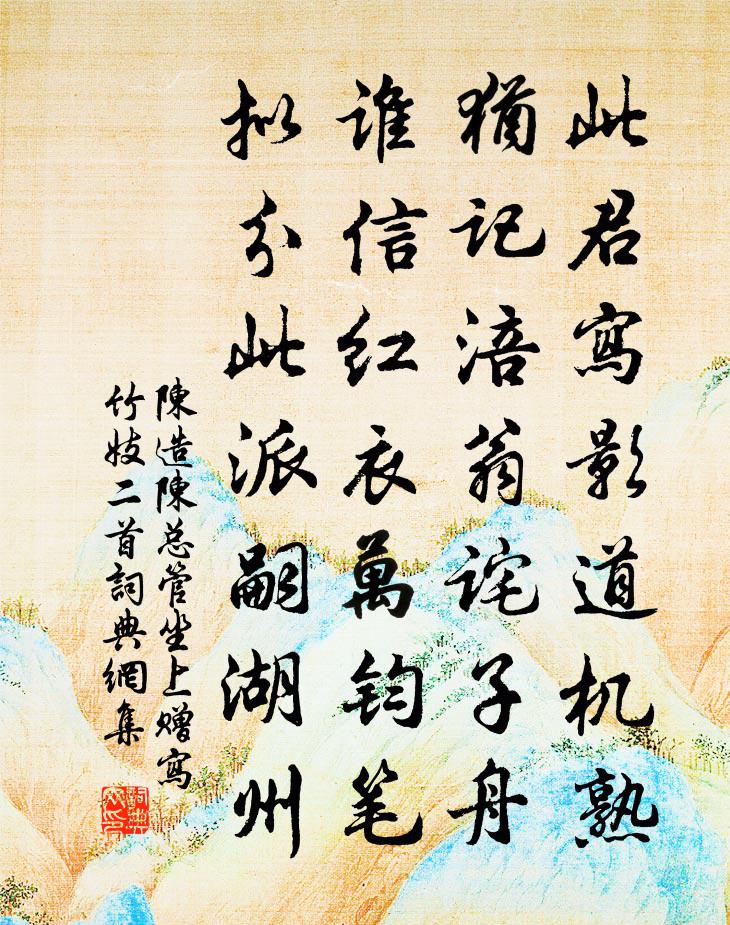 此君寫影道机熟
猶记涪翁詫子舟
谁信红衣萬钧笔
拟分此派嗣湖州
陳造陳总管坐上赠寫
竹妓二首詞典網集